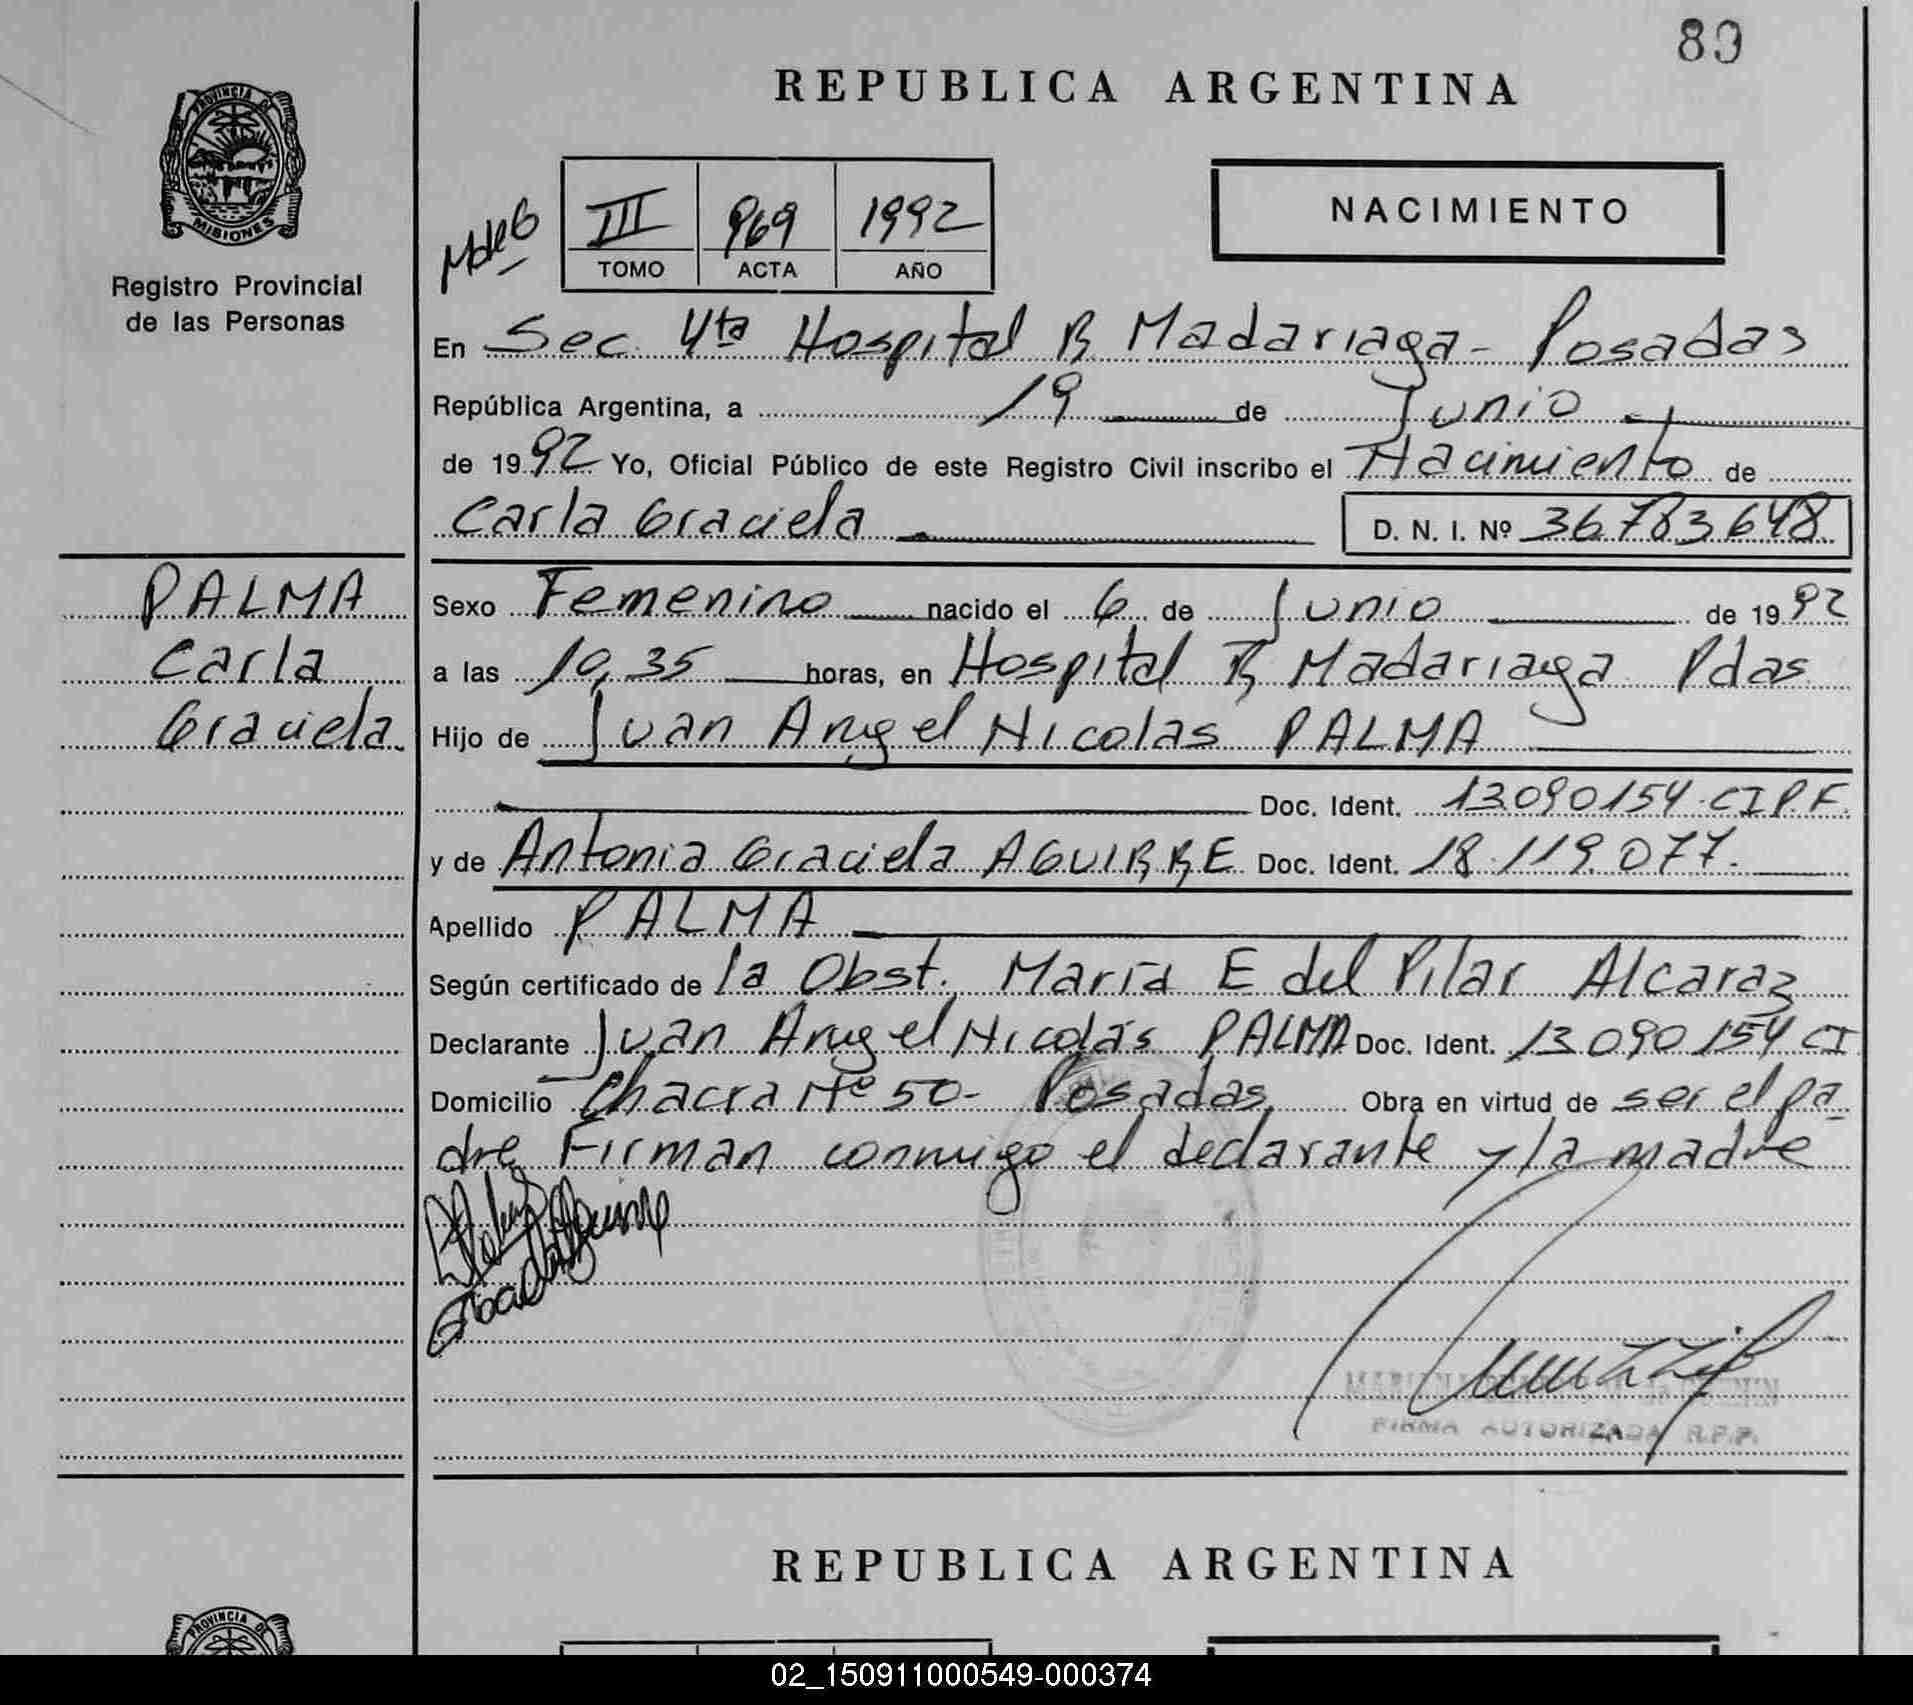 89
REPUBLICA ARGENTINA
PROVINCIA DE
MISIONES
Registro Provincial
de las Personas
III 969 1992
TOMO ACTA AÑO
NACIMIENTO
En Sec. 4ta Hospital R Madariaga - Posadas
República Argentina, a 19 de Junio
de 1992 Yo, Oficial Público de este Registro Civil inscribo el Nacimiento de
Carla Graciela D. N. I. Nº 36.783.648
PALMA
Carla
Graciela
Sexo Femenino nacido el 6 de Junio de 1992
a las 10,35 horas, en Hospital R Madariaga Pdas
Hijo de Juan Angel Nicolas PALMA
Doc. Ident. 13.090154. CI P.F.
y de Antonia Graciela AGUIRRE Doc. Ident. 18.119.077.
Apellido PALMA
Según certificado de la Obst. María E del Pilar Alcaraz
Declarante Juan Angel Nicolás PALMA Doc. Ident. 13 090 154 CI
Domicilio Chacra Nº 50- Posadas Obra en virtud de ser el pa-
dre Firman conmigo el declarante y la madre
FIRMA AUTORIZADA R.P.P.
REPUBLICA ARGENTINA
PROVINCIA DE
02_150911000549-000374